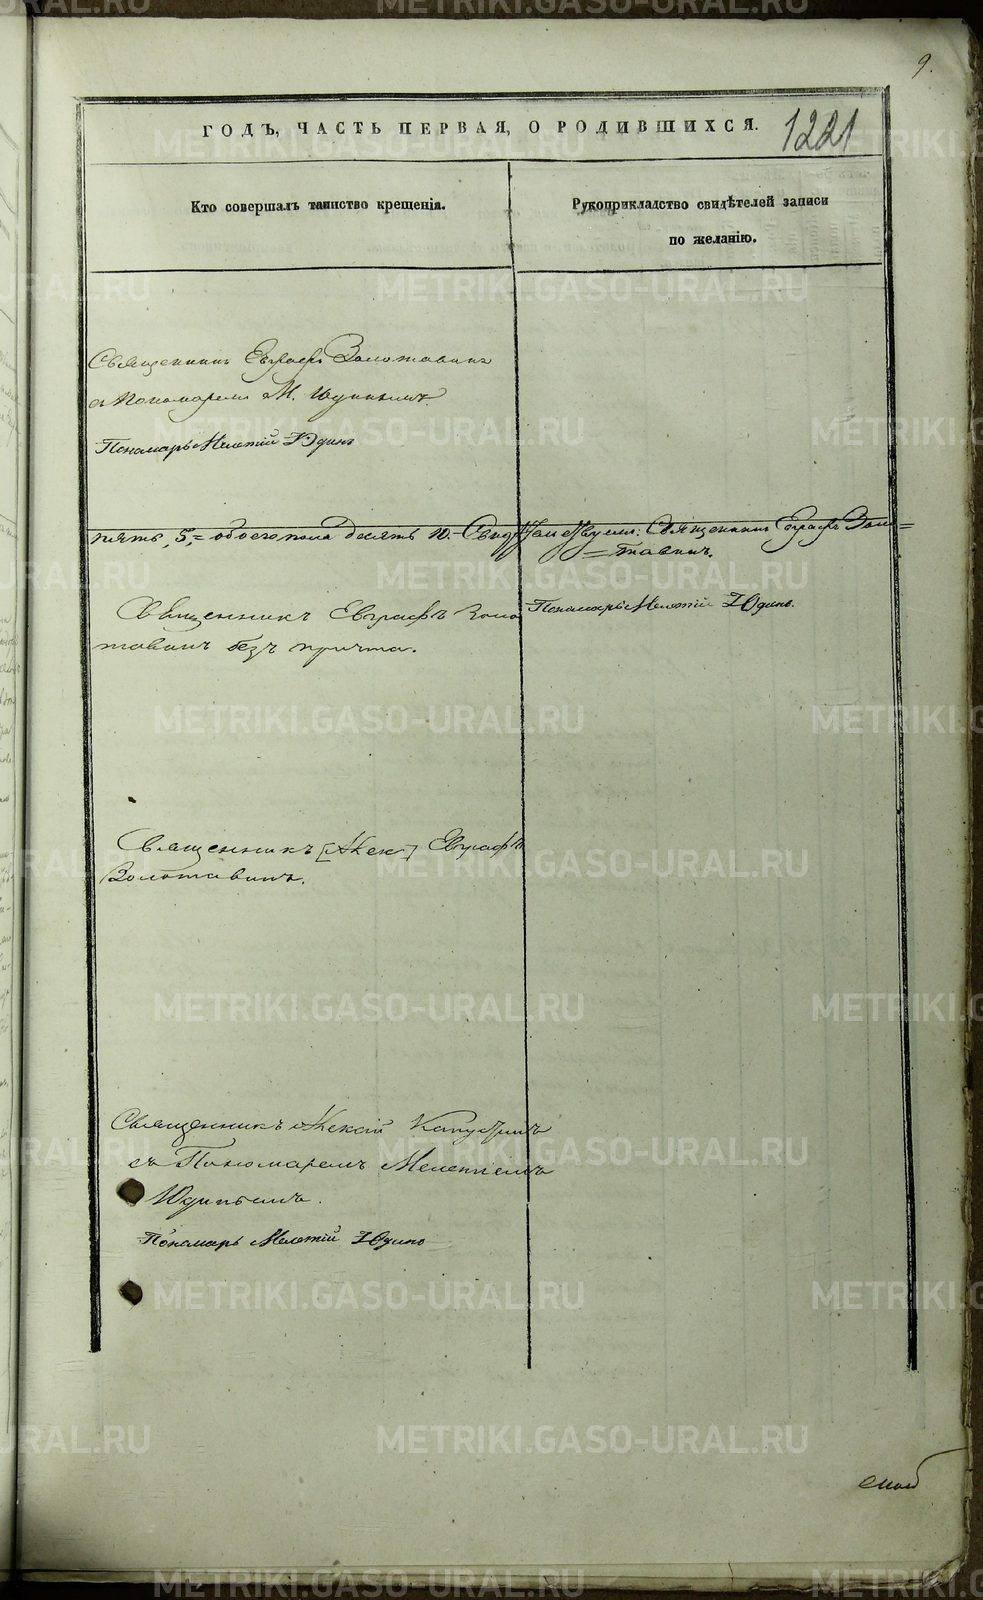 9.
ГОДЪ, ЧАСТЬ ПЕРВАЯ, О РОДИВШИХСЯ.
1221
Кто совершалъ таинство крещенія.
Рукоприкладство свидѣтелей записи
по желанію.
Священникъ Евграфъ Золотавинъ
съ Пономаремъ М. Юдинымъ.
Пономарь Мелетій Юдинъ
пять, 5, = обоего пола десять 10. –
Священникъ Евграфъ Золо=
=тавинъ.
Пономарь Мелетій Юдинъ.
Священникъ Евграфъ Золо
тавинъ безъ причта.
Священникъ [Алек] Евграфъ
Золотавинъ.
Священникъ Алексій Капустинъ
съ Пономаремъ Мелетіемъ
Юдинымъ.
Пономарь Мелетій Юдинъ
METRIKI.GASO-URAL.RU